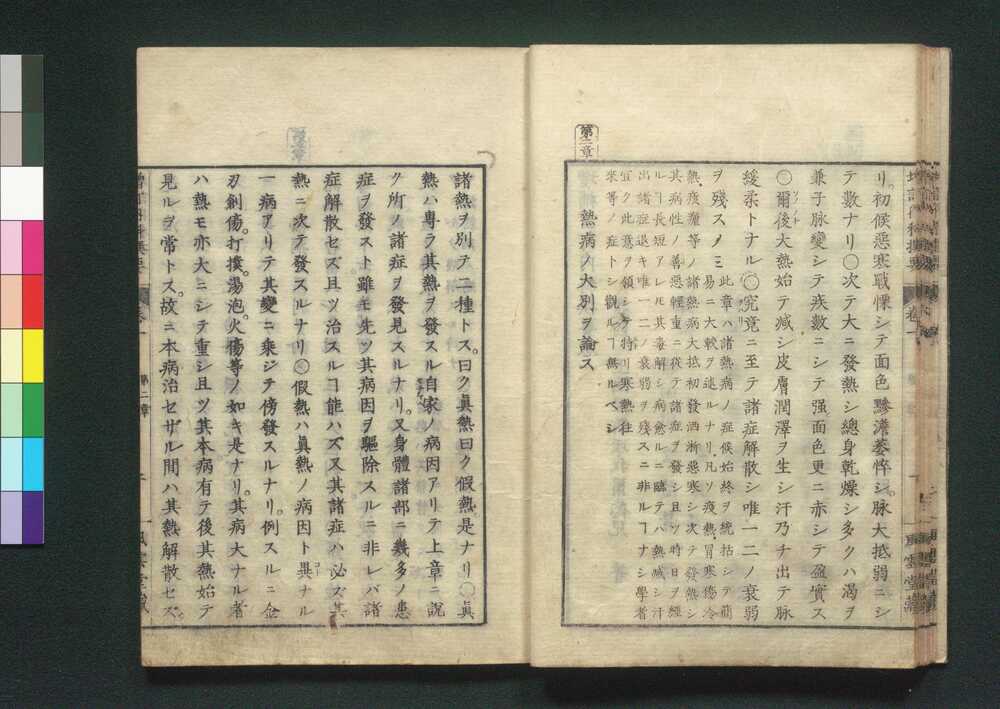 リ初候惡寒戰慄シテ面色黲濷萎悴シ脈大抵弱ニシ
テ數ナリ〇次テ大ニ發熱シ總身乾燥シ多クハ渴ヲ
兼子脉變シテ疾數ニシテ强面色更ニ赤シテ盈實ス
〇爾後大熱始テ減シ皮膚潤澤ヲ生シ汗乃チ出テ脉
緩柔トナル〇究竟ニ至テ諸症解散シ唯一二ノ衰弱
ヲ殘スノミ
此章ハ諸熱病ノ症候始終ヲ統括シテ簡
易ニ大較ヲ述ルナリ凡ソ疫熱冒寒傷冷
熱痰癊等ノ諸熱病大抵初發洒淅惡寒シ次テ發熱シ
其病性ノ善惡輕重ニ從テ諸症ヲ發シ且ツ時日ヲ經
ルヿ長短アレ𪜈其毒解シ病愈ルニ臨テハ熱減シ汗
出諸症退キ唯一二ノ衰弱ヲ殘スニ非ルヿナシ學者
宜ク此意ヲ領シテ特リ寒熱往
來等ノ症トシ觀ルヿ無ルベシ
第二章
熱病ノ大別ヲ論ス
諸熱ヲ別テ二種トス。曰ク眞熱曰ク假熱是ナリ〇眞
熱ハ專ラ其熱ヲ發スル自家ノ病因アリテ上章ニ説
ク所ノ諸症ヲ發見スルナリ。又身體諸部ニ幾多ノ患
症ヲ發スト雖モ先ツ其病因ヲ驅除スルニ非レバ諸
症解散セズ且ツ治スルヿ能ハズ又其諸症ハ必ズ其
熱ニ次テ發スルナリ〇假熱ハ眞熱ノ病因ト異ナル
一病アリテ其變ニ乘ジテ傍發スルナリ。例スルニ金
刃創傷。打撲。湯泡。火傷等ノ如キ是ナリ。其病大ナル者
ハ熱モ亦大ニシテ重シ且ツ其本病有テ後其熱始テ
見ルヲ常トス。故ニ本病治セザル間ハ其熱解散セズ。
第二章
二
風雲堂藏